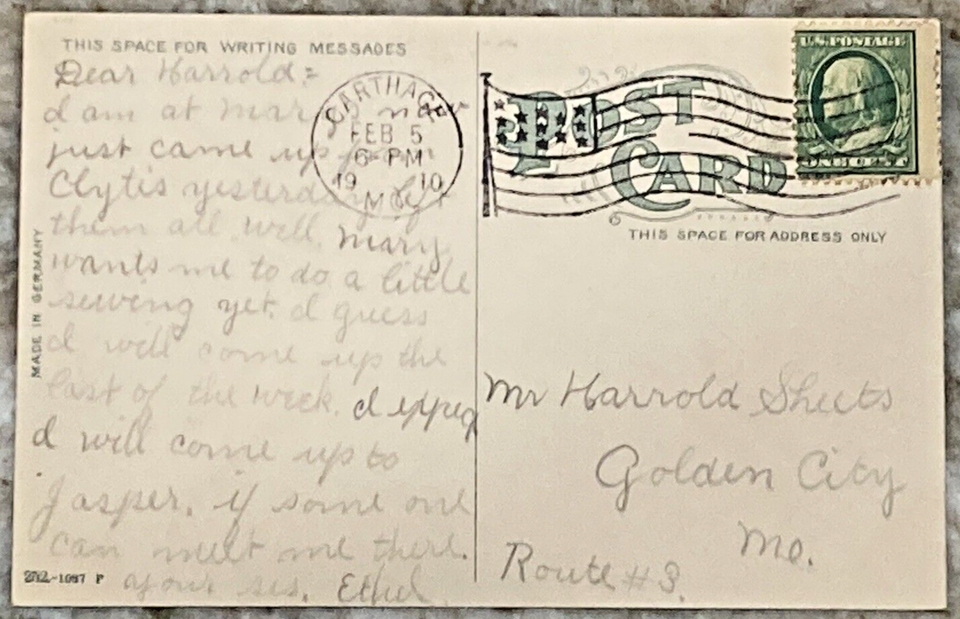 THIS SPACE FOR WRITING MESSAGES
Dear Harrold:
I am at Mary's now
just came up from
Clytis yesterday left
them all well. Mary
wants me to do a little
sewing yet. I guess
I will come up the
last of the week. I
I will come up to
Jasper, if some one
can meet me there.
Your sis. Ethel.
MADE IN GERMANY
212-1057 P
CARTHAGE
FEB 5
6 PM
19 10
MO.
POST
CARD
U.S. POSTAGE
ONE CENT
THIS SPACE FOR ADDRESS ONLY
Mr Harrold Sheets
Golden City
Mo.
Route #3.